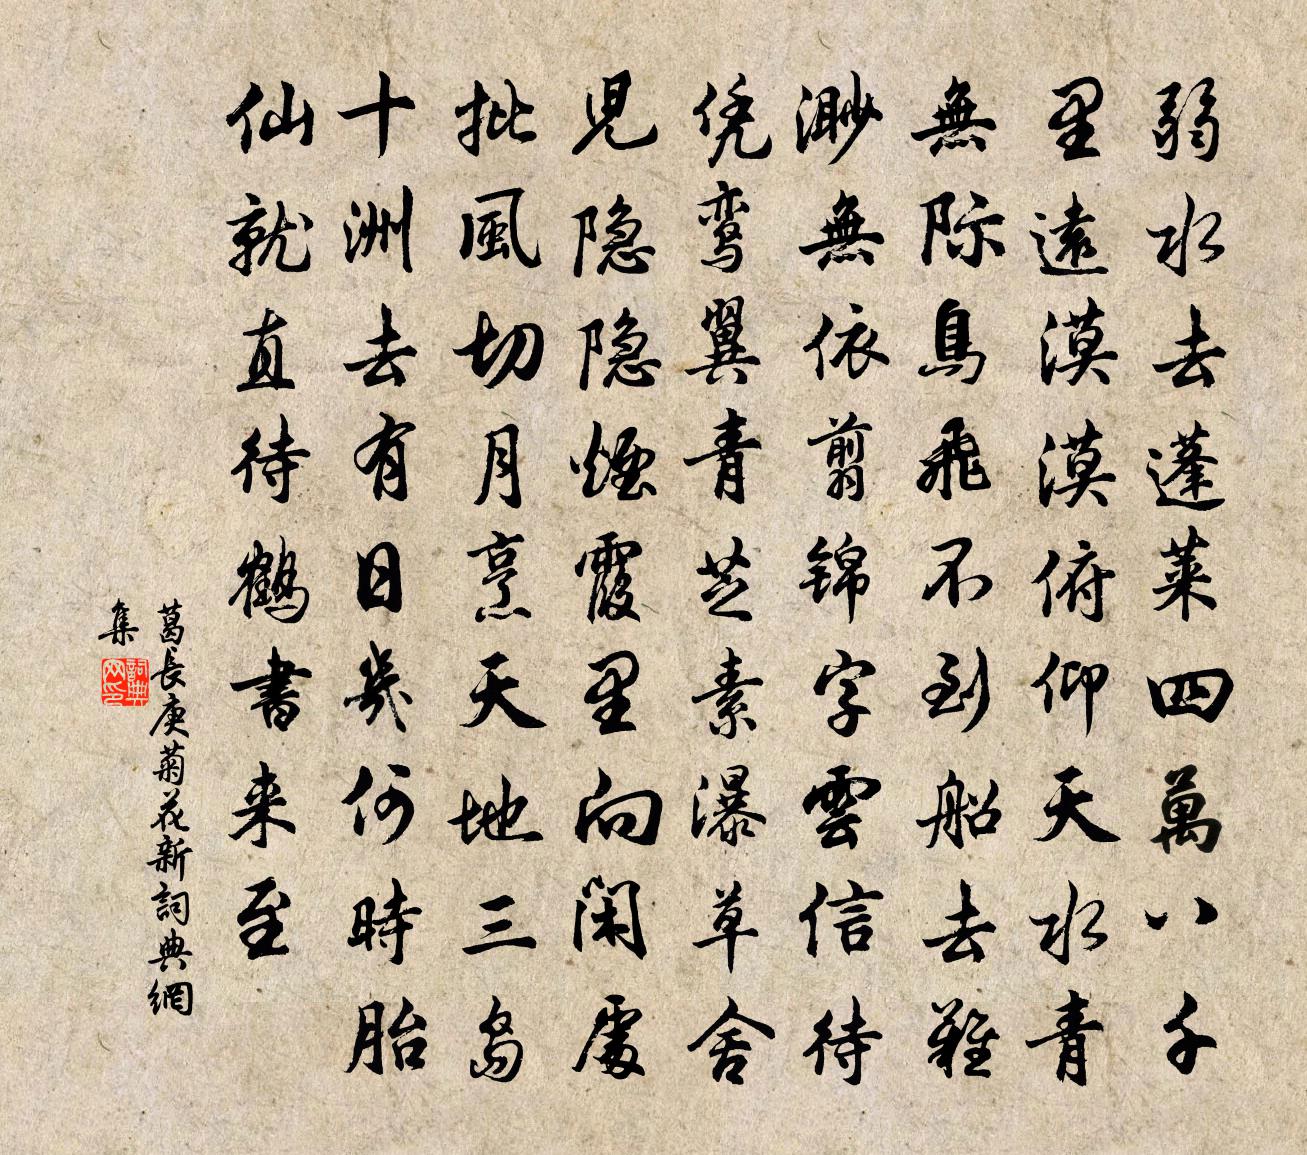 弱水去蓬莱四萬八千
里遠漠漠俯仰天水青
無际鳥飛不到船去難
渺無依翦锦字雲信待
凭鸾翼青芝素瀑草舍
児隐隐煙霞里向闲處
批風切月烹天地三島
十洲去有日幾何時胎
仙就直待鶴書来至
葛長庚菊花新詞典網
集
詞典
网印